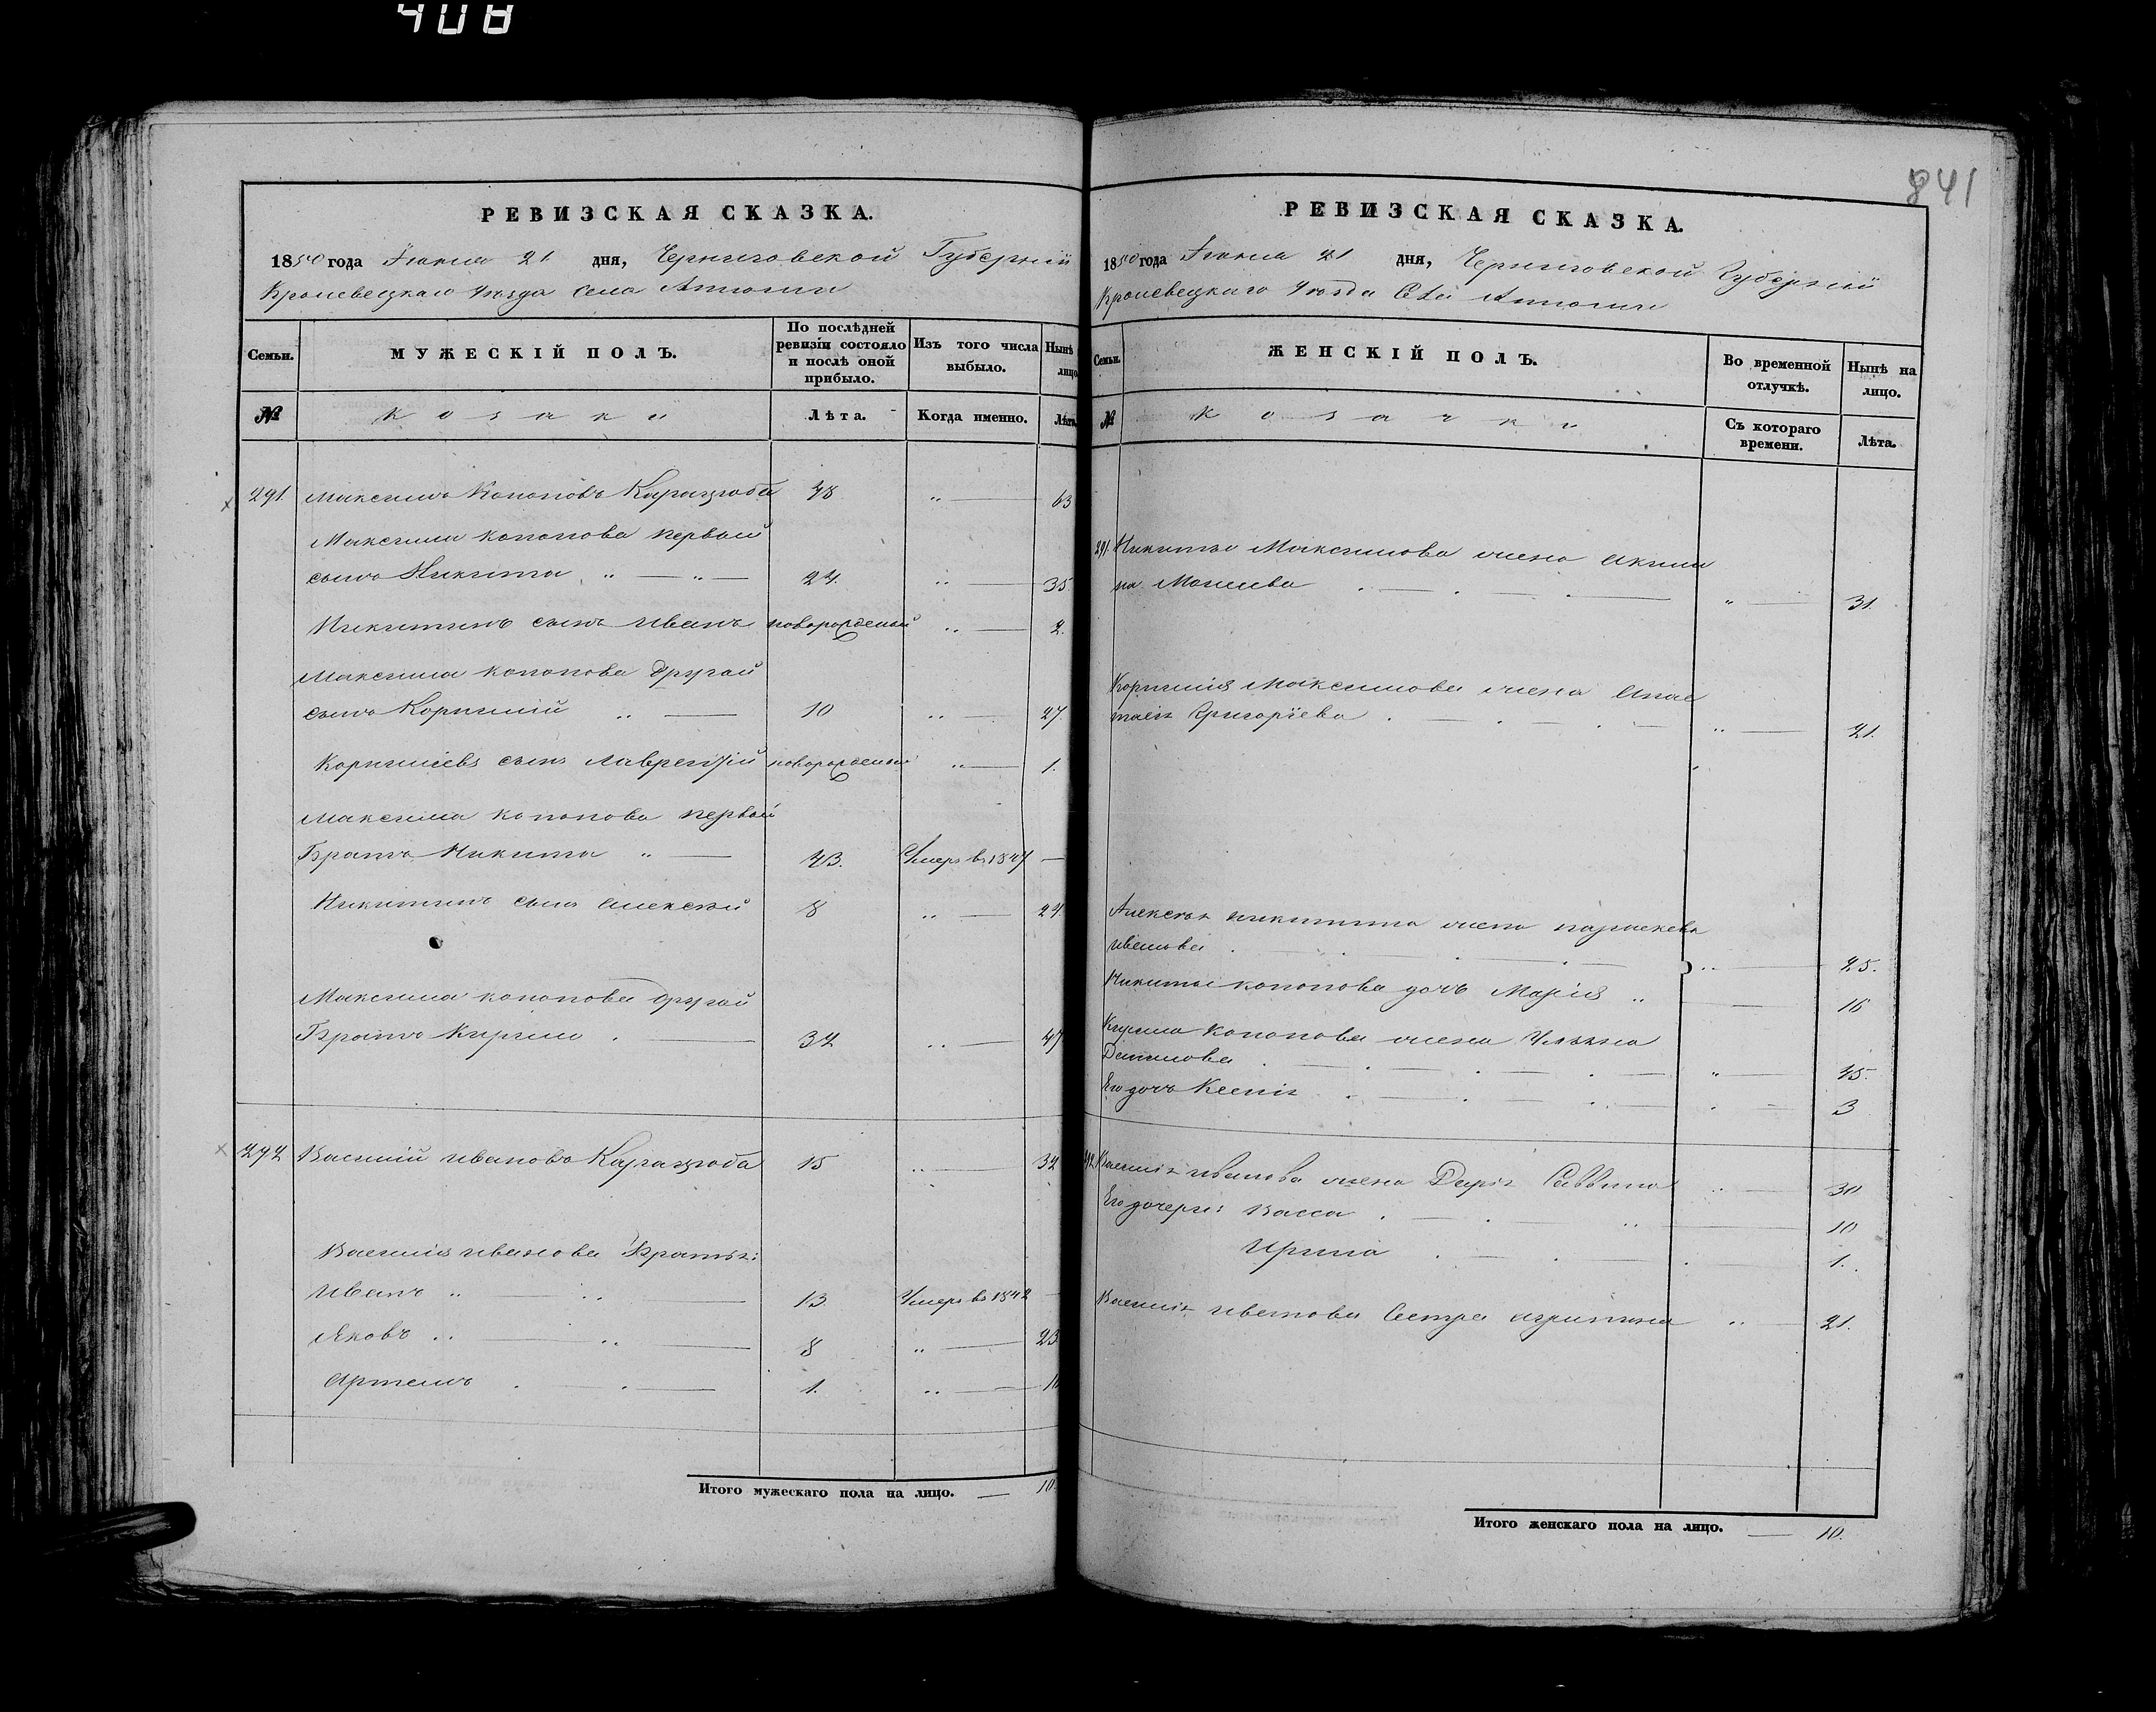 408
841
РЕВИЗСКАЯ СКАЗКА.
1850 года Июня 21 дня, Черниговской Губерніи
Кролевецкаго Уѣзда Села
Семьи.
МУЖЕСКІЙ ПОЛЪ.
По послѣдней ревизіи состояло и послѣ оной прибыло.
Изъ того числа выбыло.
Нынѣ лицо
№
Козаки
Лѣта.
Когда именно.
Лѣта
291. Максимъ Кононовъ 48 " 63
Максима Кононова первый
сынъ Никита " " 24. " 35
Никитинъ сынъ Иванъ новорожденый " 2.
Максима Кононова другой
сынъ Корнилій " 10 " 27.
Корниліевъ сынъ Лаврентій новорожденый " 1.
Максима Кононова первый
Братъ Никита " 43. Умеръ въ 1847 —
Никитинъ сынъ Алексѣй 8 " 24
Максима Кононова другой
Братъ Кирилъ 32 " 47
292 Василій Ивановъ 15 " 32
Василія Иванова Братья:
Иванъ " 13 Умеръ въ 1842 —
Яковъ " 8 " 23
Артемъ 1. "
Итого мужескаго пола на лицо. — 10.
РЕВИЗСКАЯ СКАЗКА.
1850 года Июня 21 дня, Черниговской Губерніи
Кролевецкаго Уѣзда
Семьи.
ЖЕНСКІЙ ПОЛЪ.
Во временной отлучкѣ.
Нынѣ на лицо.
№
Козачки
Съ котораго времени.
Лѣта.
291. Никиты Максимова жена Акили
на " 31.
Корнилія Максимова жена Анас
тасія Григоріева " 21.
Алексѣя Никитина жена Параскева
Иванова " 25.
Никиты Кононова дочь Марія " 16
Кирила Кононова жена Ульяна
Данилова " 45.
Его дочь Ксенія 3
292 Василія Иванова жена Дарія Саввина " 30
Его дочери: Васса " 10
Ирина 1.
Василія Иванова Сестра Агрипина " 21.
Итого женскаго пола на лицо. — 10.